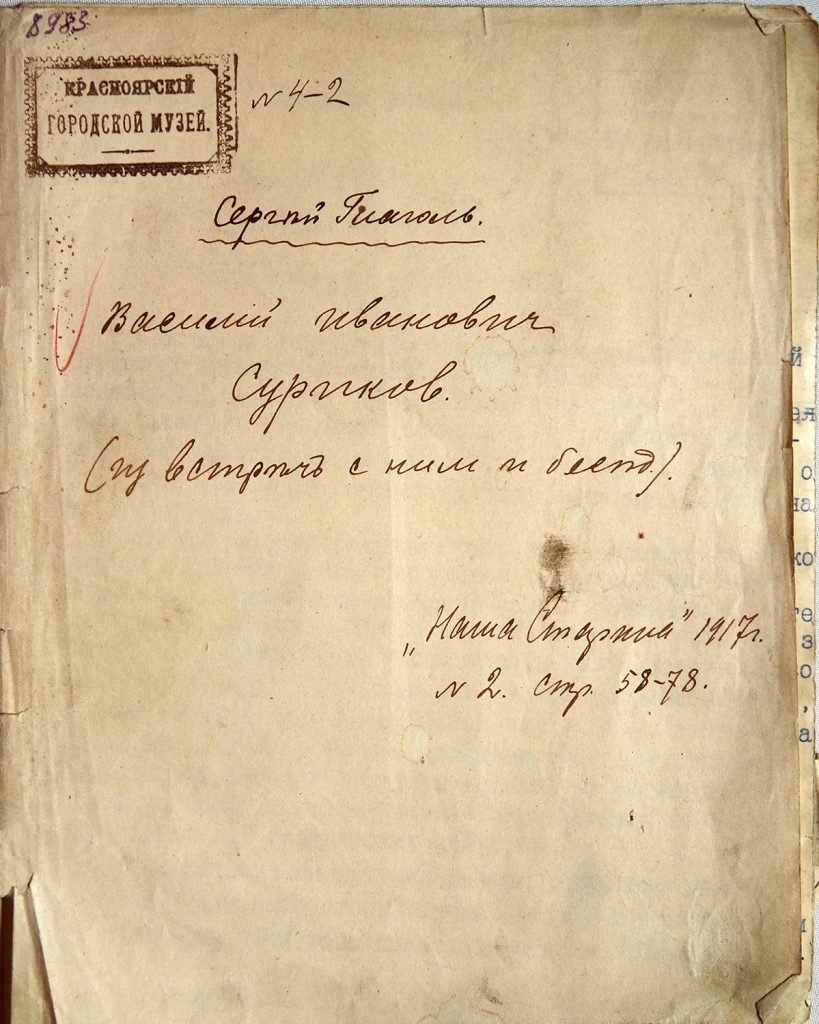 8983
КРАСНОЯРСКІЙ
ГОРОДСКОЙ МУЗЕЙ.
№ 4-2
Сергѣй Глаголь.
Василий Иванович
Суриков.
(из встрѣчъ с ним и бесѣд).
„Наша Старина" 1917г.
№ 2. стр. 58-78.